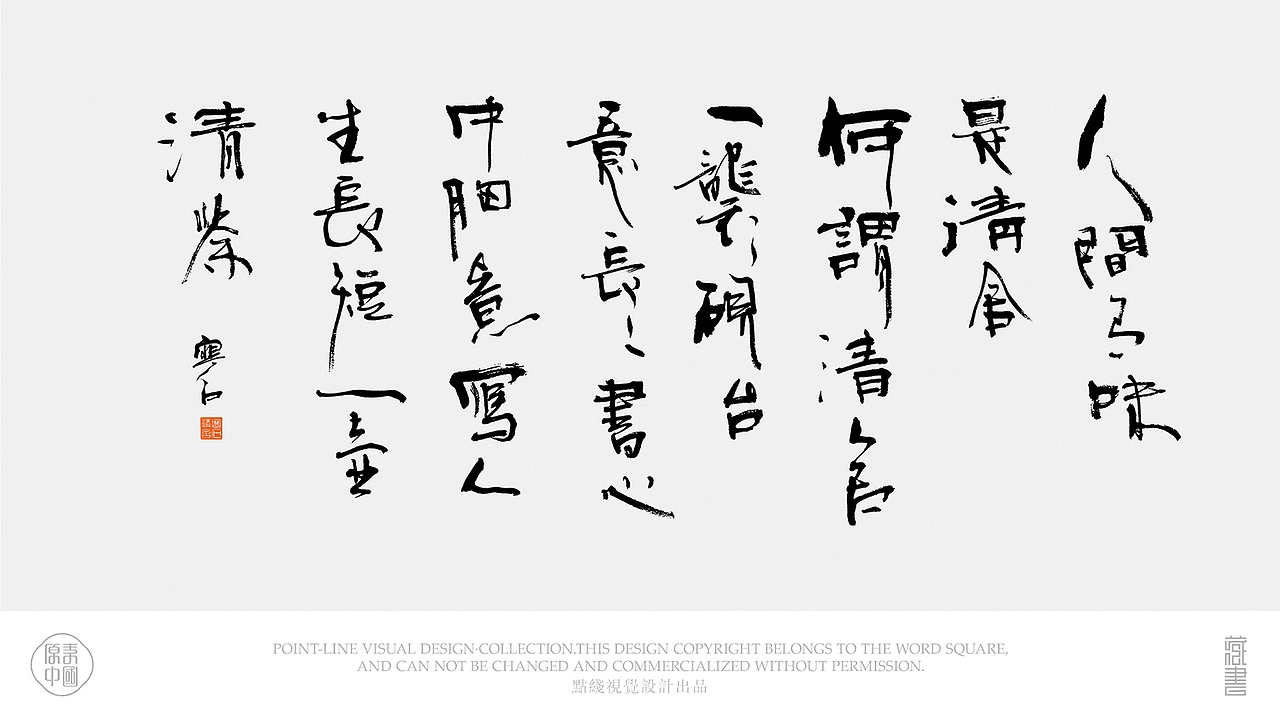 人間有味
是清舍
何謂清舍
一襲硯台
意長〻書心
中胭意寫人
生長短一壺
清茶
POINT-LINE VISUAL DESIGN·COLLECTION.THIS DESIGN COPYRIGHT BELONGS TO THE WORD SQUARE,
AND CAN NOT BE CHANGED AND COMMERCIALIZED WITHOUT PERMISSION.
點綫視覺設計出品
原素中國
藏書